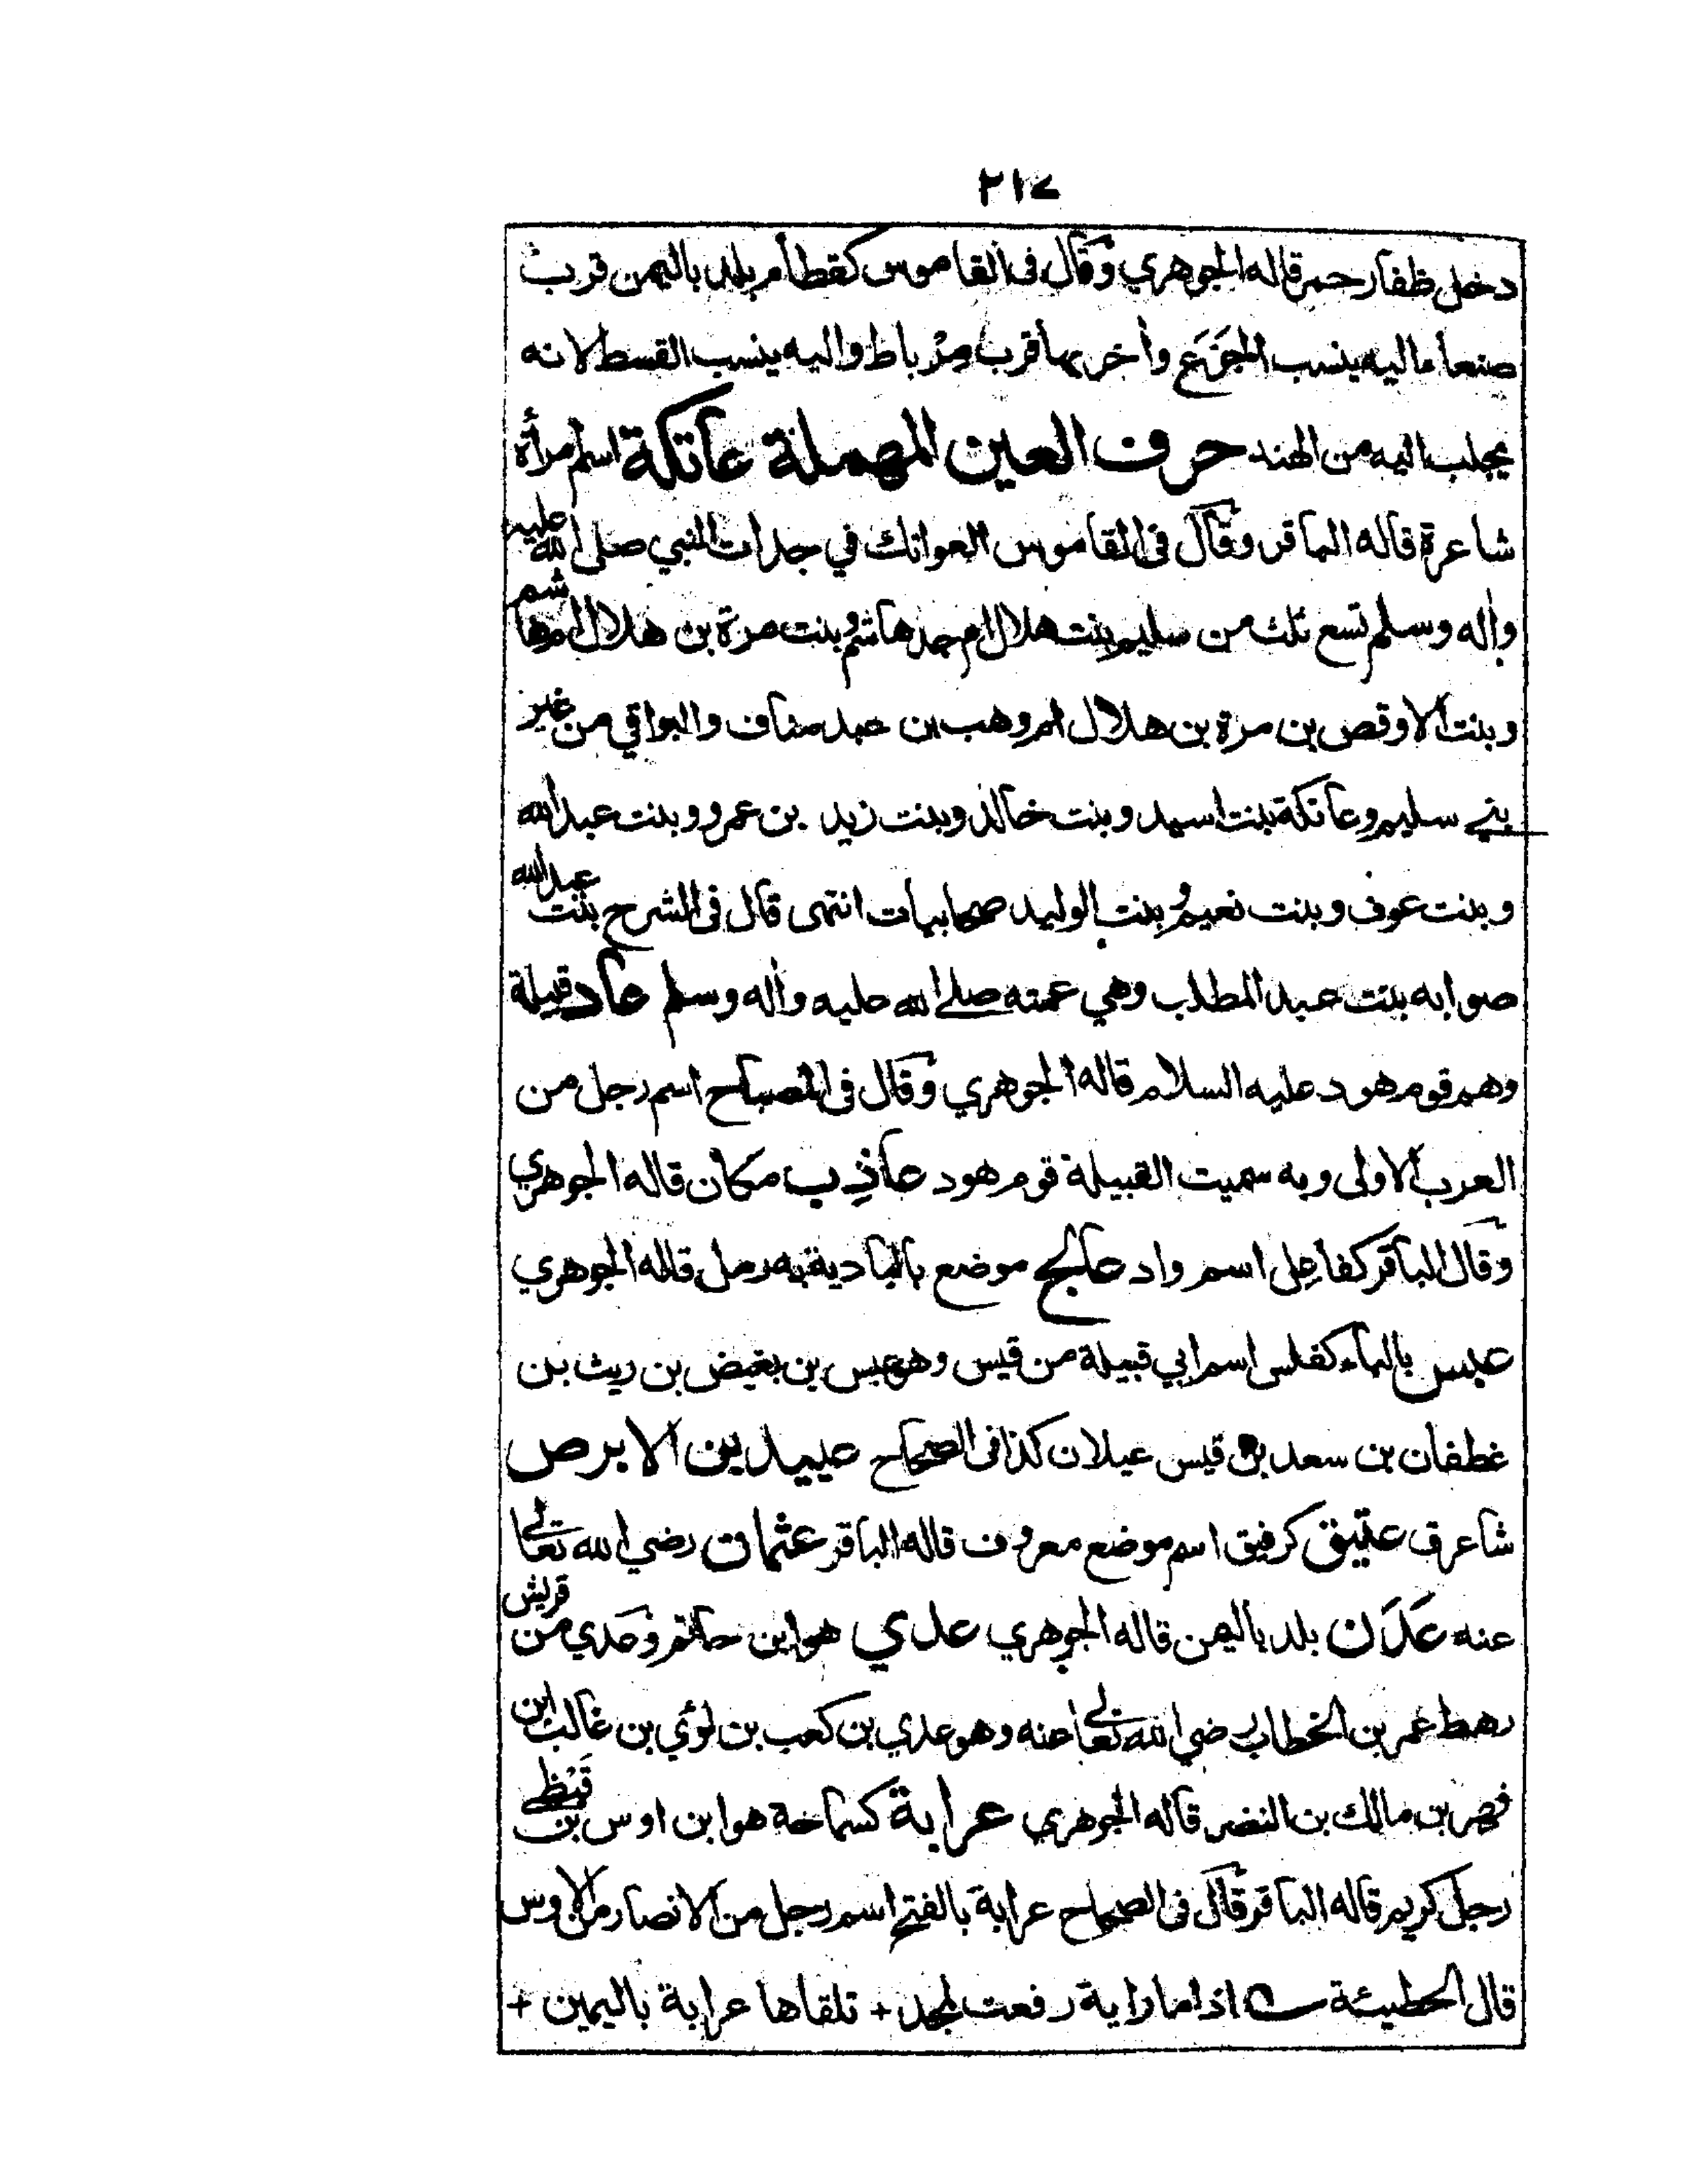 ٢١٧
دخل ظفار حمر قاله الجوهري وقال فى القاموس كقطام بلد باليمن قرب
صنعأ ماليه ينسب الجَزَع وأخر بها قرب مِرْباط واليه ينسب القسط لانه
يجلب اليه من الهند حرف العين المهملة عاتكة اسم امرأة
شاعرة قاله الباقر وقال فى القاموس العواتك في جدات النبي صلى الله عليه
وأله وسلم تسع ثلث من سليم بنت هلال ام جد هاشم وبنت مرة بن هلال ام هاشم
وبنت الاوقص بن مرة بن هلال ام وهب بن عبد مناف والبواقي من غير
بني سليم وعاتكة بنت اسيد وبنت خالد وبنت زيد بن عمرو وبنت عبد الله
وبنت عوف وبنت نعيم وبنت الوليد صحابيات انتهى قال فى الشرح بنت عبد الله
صوابه بنت عبد المطلب وهي عمته صلے الله عليه وأله وسلم عاد قبيلة
وهم قوم هود عليه السلام قاله الجوهري وقال فى المصباح اسم رجل من
العرب الاولى وبه سميت القبيلة قوم هود عاذب مكان قاله الجوهري
وقال الباقر كفاعل اسم واد عالج موضع بالبادية به رمل قاله الجوهري
عبس بالباء كفلس اسم ابي قبيلة من قيس وهو عبس بن بغيض بن ريث بن
غطفان بن سعد بن قيس عيلان كذا فى الصحاح عبيد بن الابرص
شاعر ق عتيق كرفيق اسم موضع معروف قاله الباقر عثمان رضي الله تعالے
عنه عَدَن بلد باليمن قاله الجوهري عدي هو ابن حاتم وعدي من قريش
رهط عمر بن الخطاب رضي الله تعالے عنه وهو عدي بن كعب بن لوئي بن غالب ابن
فهر بن مالك بن النضر قاله الجوهري عرابة كسماحة هو ابن اوس بن قَيْظے
رجل كريم قاله الباقر قال فى الصحاح عرابة بالفتح اسم رجل من الانصار من الاوس
قال الحطيئة ے اذا ما راية رفعت لمجد + تلقاها عرابة باليمين +